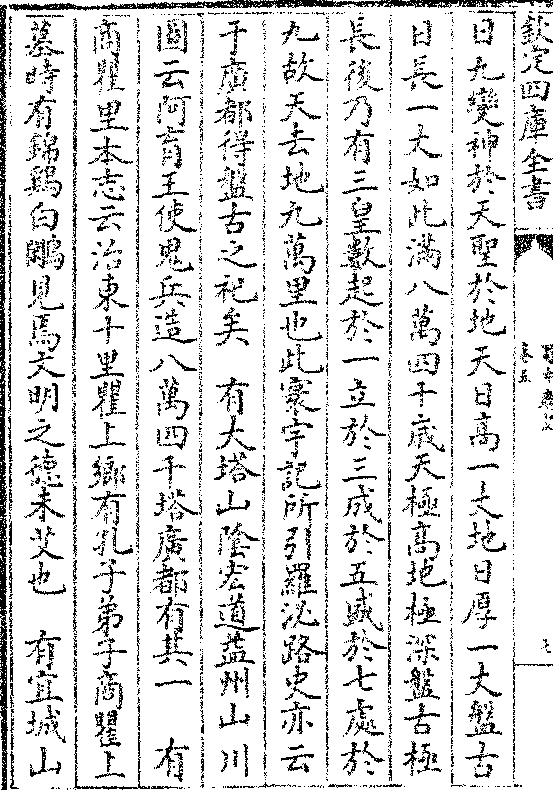 欽定四庫全書
蜀中廣記
卷五
七
日九變神於天聖於地天日高一丈地日厚一丈盤古
日長一丈如此滿八萬四千歲天極高地極深盤古極
長後乃有三皇數起於一立於三成於五盛於七處於
九故天去地九萬里也此寰宇記所引羅泌路史亦云
于廣都得盤古之祀矣　有大塔山隂宏道益州山川
圖云阿育王使鬼兵造八萬四千塔廣都有其一　有
商瞿里本志云治東十里瞿上鄉有孔子弟子商瞿上
墓時有錦鷄白鷳見焉文明之德未艾也　有宜城山